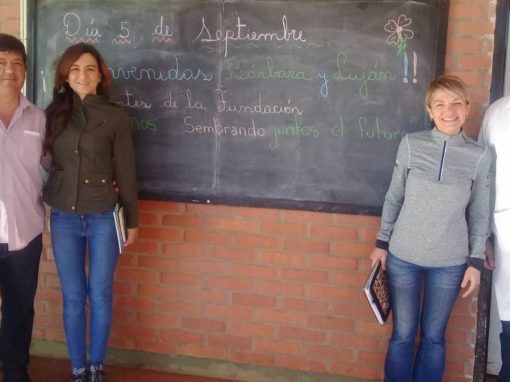 Día 5 de Septiembre
Bárbara y Luján!!
de la Fundación
Sembrando juntos el futuro"